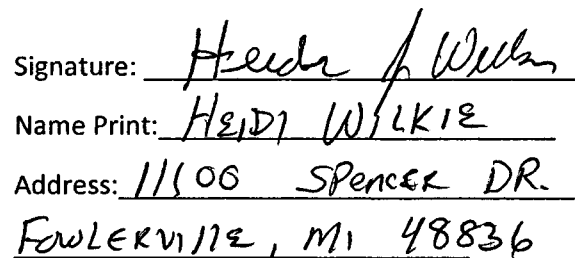 Signature: Heidi J Wilk
Name Print: HEIDI WILKIE
Address: 11100 SPENCER DR.
FOWLERVILLE, MI 48836